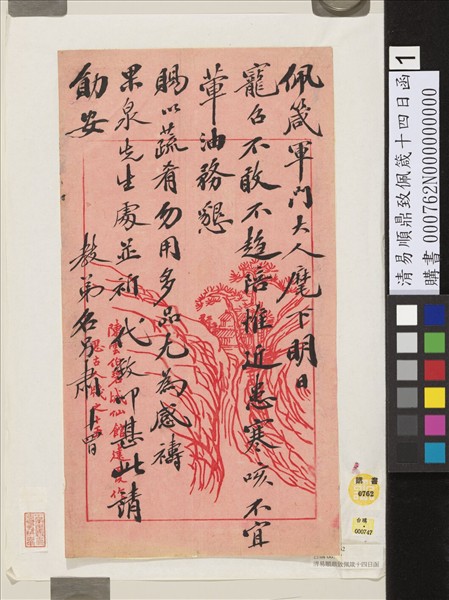 佩箴軍門大人麾下明日
寵召不敢不趨陪惟近患寒咳不宜
葷油務懇
賜以蔬肴勿用多品尤為感禱
果泉先生處並祈代致即甚此請
勛安
教弟名另肅 十四日
清易順鼎致佩箴十四日函
購書 000762N000000000
1
購書
0762
台購
000747
清易順鼎致佩箴十四日函